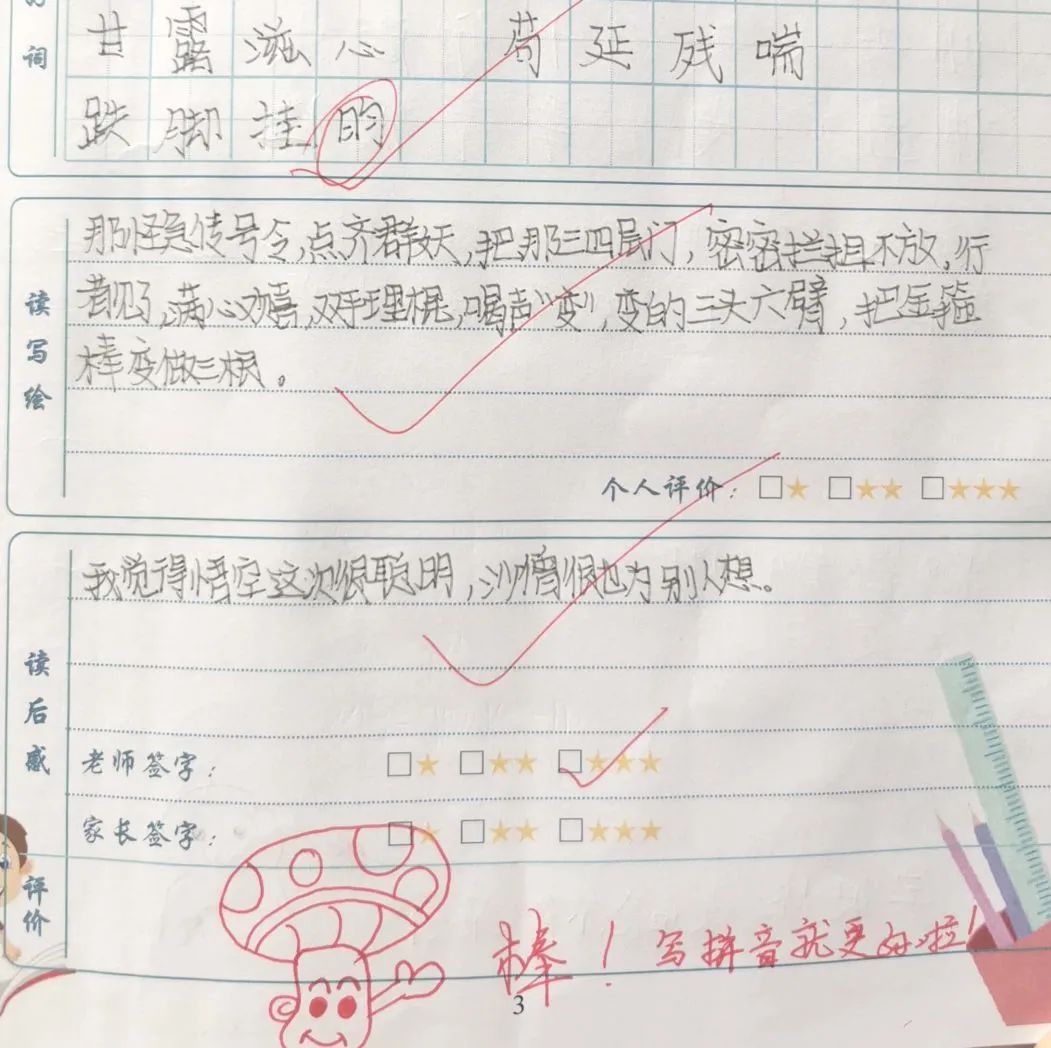 词
甘露滋心 苟延残喘
跌脚挂
读写绘
那怪急传号令,点齐群妖,把那三四层门,密密拦阻不放,行
者见了,满心欢喜,双手理棍,喝声“变”,变的三头六臂,把金箍
棒变做三根。
个人评价:
读后感
我觉得悟空这次很聪明,沙僧很也为别人想。
老师签字:
家长签字:
评价
棒!写拼音就更好啦!
3